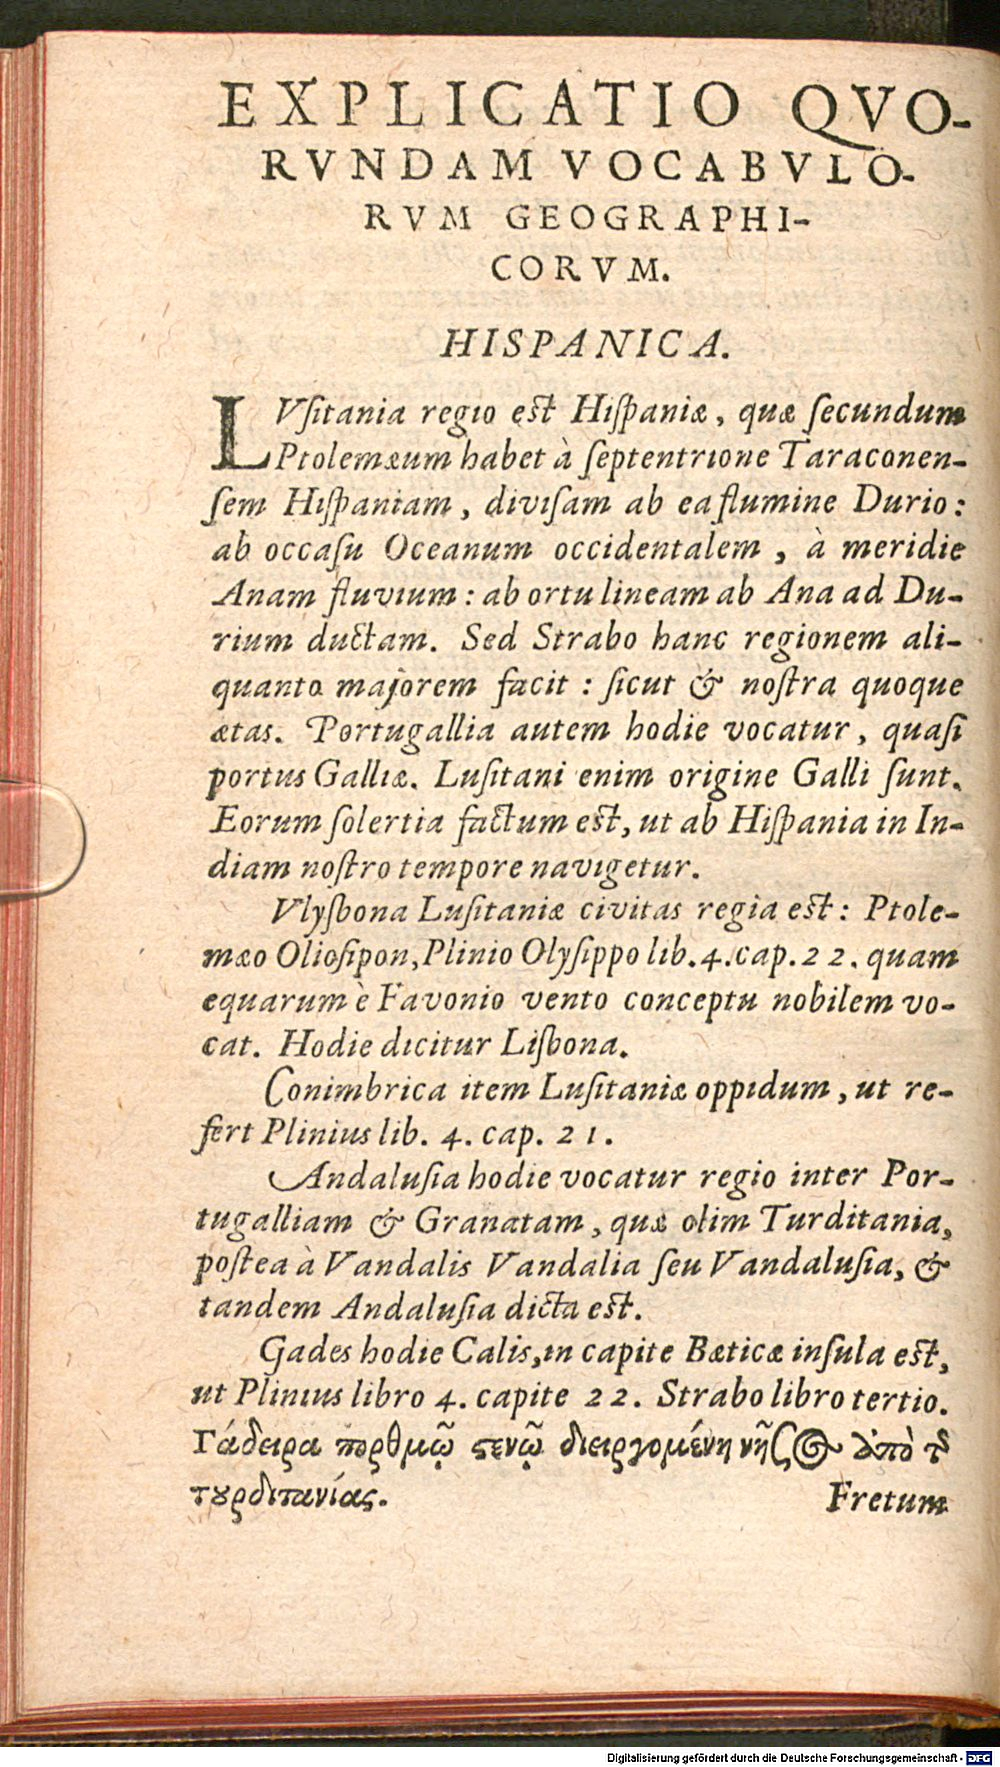 EXPLICATIO QVO-
RVNDAM VOCABVLO-
RVM GEOGRAPHI-
CORVM.
HISPANICA.
LVſitania regio eſt Hiſpaniæ, quæ ſecundum
Ptolemæum habet à ſeptentrione Taraconen-
ſem Hiſpaniam, diviſam ab ea flumine Durio:
ab occaſu Oceanum occidentalem, à meridie
Anam fluvium: ab ortu lineam ab Ana ad Du-
rium ductam. Sed Strabo hanc regionem ali-
quanto majorem facit: ſicut & noſtra quoque
ætas. Portugallia autem hodie vocatur, quaſi
portus Galliæ. Luſitani enim origine Galli ſunt.
Eorum ſolertia factum eſt, ut ab Hiſpania in In-
diam noſtro tempore navigetur.
Vlyſbona Luſitaniæ civitas regia eſt: Ptole-
mæo Olioſipon, Plinio Olyſippo lib. 4. cap. 22. quam
equarum è Favonio vento conceptu nobilem vo-
cat. Hodie dicitur Liſbona.
Conimbrica item Luſitaniæ oppidum, ut re-
fert Plinius lib. 4. cap. 21.
Andaluſia hodie vocatur regio inter Por-
tugalliam & Granatam, quæ olim Turditania,
poſtea à Vandalis Vandalia ſeu Vandaluſia, &
tandem Andaluſia dicta eſt.
Gades hodie Calis, in capite Bæticæ inſula eſt,
ut Plinius libro 4. capite 22. Strabo libro tertio.
Γάδειρα πορθμῷ ϛενῷ διειργομένη νῆσος ἀπὸ τῆς
τȣρδιτανίας.
Fretum
Digitalisierung gefördert durch die Deutsche Forschungsgemeinschaft - DFG